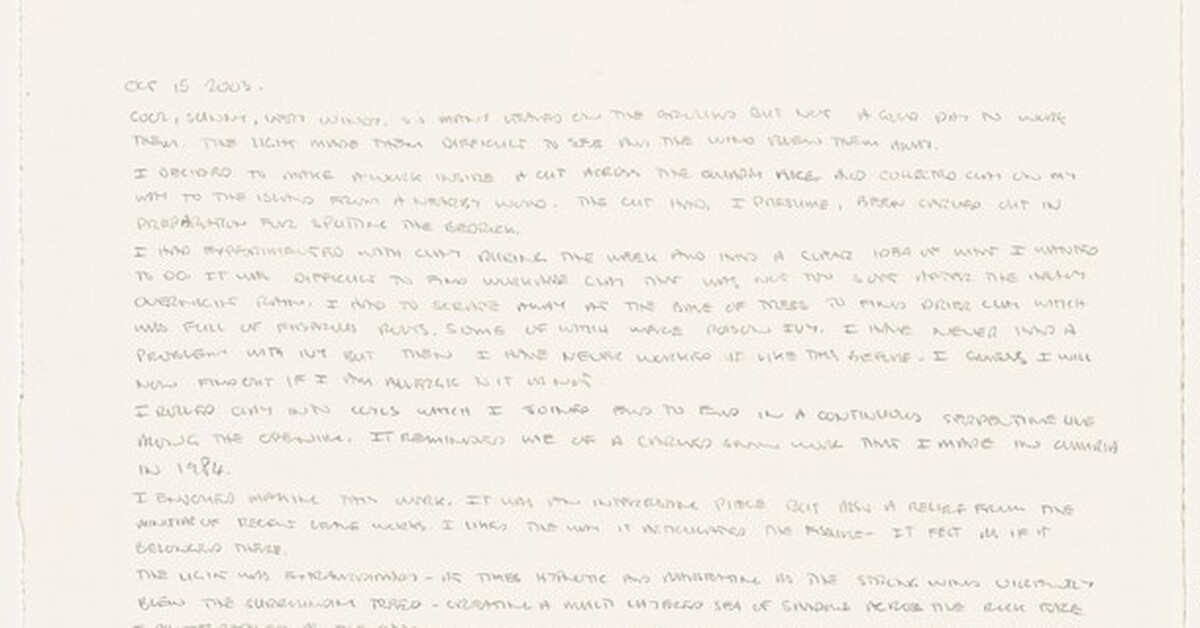 OCT 15 2003.
COOL, SUNNY, VERY WINDY. SO MANY LEAVES ON THE GROUND BUT NOT A GOOD DAY TO WORK
THEM. THE LIGHT MADE THEM DIFFICULT TO SEE AND THE WIND BLEW THEM AWAY.
I DECIDED TO MAKE A WORK INSIDE A CUT ACROSS THE QUARRY FACE AND COLLECTED CLAY ON MY
WAY TO THE ISLAND FROM A NEARBY WOOD. THE CUT HAD, I PRESUME, BEEN CARVED OUT IN
PREPARATION FOR SPLITTING THE BEDROCK.
I HAD EXPERIMENTED WITH CLAY DURING THE WEEK AND HAD A CLEAR IDEA OF WHAT I WANTED
TO DO. IT WAS DIFFICULT TO FIND WORKABLE CLAY THAT WAS NOT TOO SOFT AFTER THE HEAVY
OVERNIGHT RAIN. I HAD TO SCRAPE AWAY AT THE BASE OF TREES TO FIND DRIER CLAY WHICH
WAS FULL OF FIBROUS ROOTS. SOME OF WHICH WERE POISON IVY. I HAVE NEVER HAD A
PROBLEM WITH IVY BUT THEN I HAVE NEVER WORKED IT LIKE THIS BEFORE - I GUESS I WILL
NOW FIND OUT IF I AM ALLERGIC TO IT OR NOT.
I ROLLED CLAY INTO COILS WHICH I JOINED END TO END IN A CONTINUOUS SERPENTINE LINE
ALONG THE OPENING. IT REMINDED ME OF A CARVED SNOW WORK THAT I MADE IN CUMBRIA
IN 1984.
I ENJOYED MAKING THIS WORK. IT WAS AN INTERESTING PIECE BUT ALSO A RELIEF FROM THE
OF RECENT LEAF WORKS. I LIKED THE WAY IT ARTICULATED THE FISSURE - IT FELT AS IF IT
BELONGED THERE.
THE LIGHT WAS EXTRAORDINARY - AT TIMES HYPNOTIC AND AS THE STRONG WIND VIOLENTLY
BLEW THE SURROUNDING TREES - CREATING A MULTI LAYERED SEA OF SHADOW ACROSS THE ROCK FACE